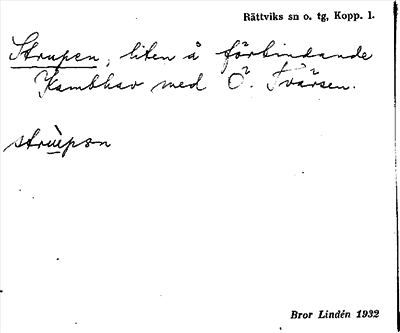 Rättviks sn o. tg, Kopp. l.
Strupen, liten å förbindande
Kambhav med Ö. Tvärsen.
strùpsn
Bror Lindén 1932